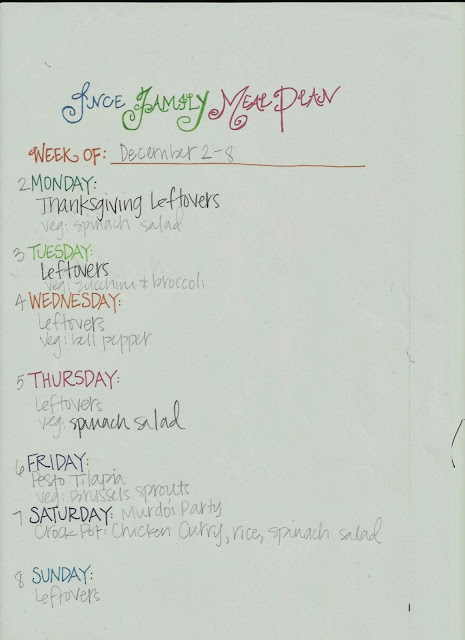 Ince Family Meal Plan
WEEK OF: December 2-8
2 MONDAY:
Thanksgiving Leftovers
veg: spinach salad
3 TUESDAY:
Leftovers
veg: zucchini + broccoli
4 WEDNESDAY:
Leftovers
veg: bell pepper
5 THURSDAY:
Leftovers
veg: spinach salad
6 FRIDAY:
Pesto Tilapia
veg: Brussels sprouts
7 SATURDAY: Murdo's Party
Crock Pot: Chicken Curry, rice, spinach salad
8 SUNDAY:
Leftovers